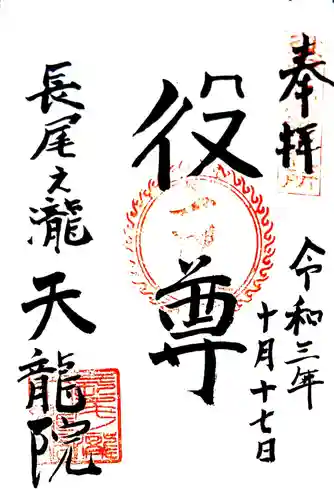 奉拝
令和三年
十月十七日
役尊
長尾之瀧
天龍院